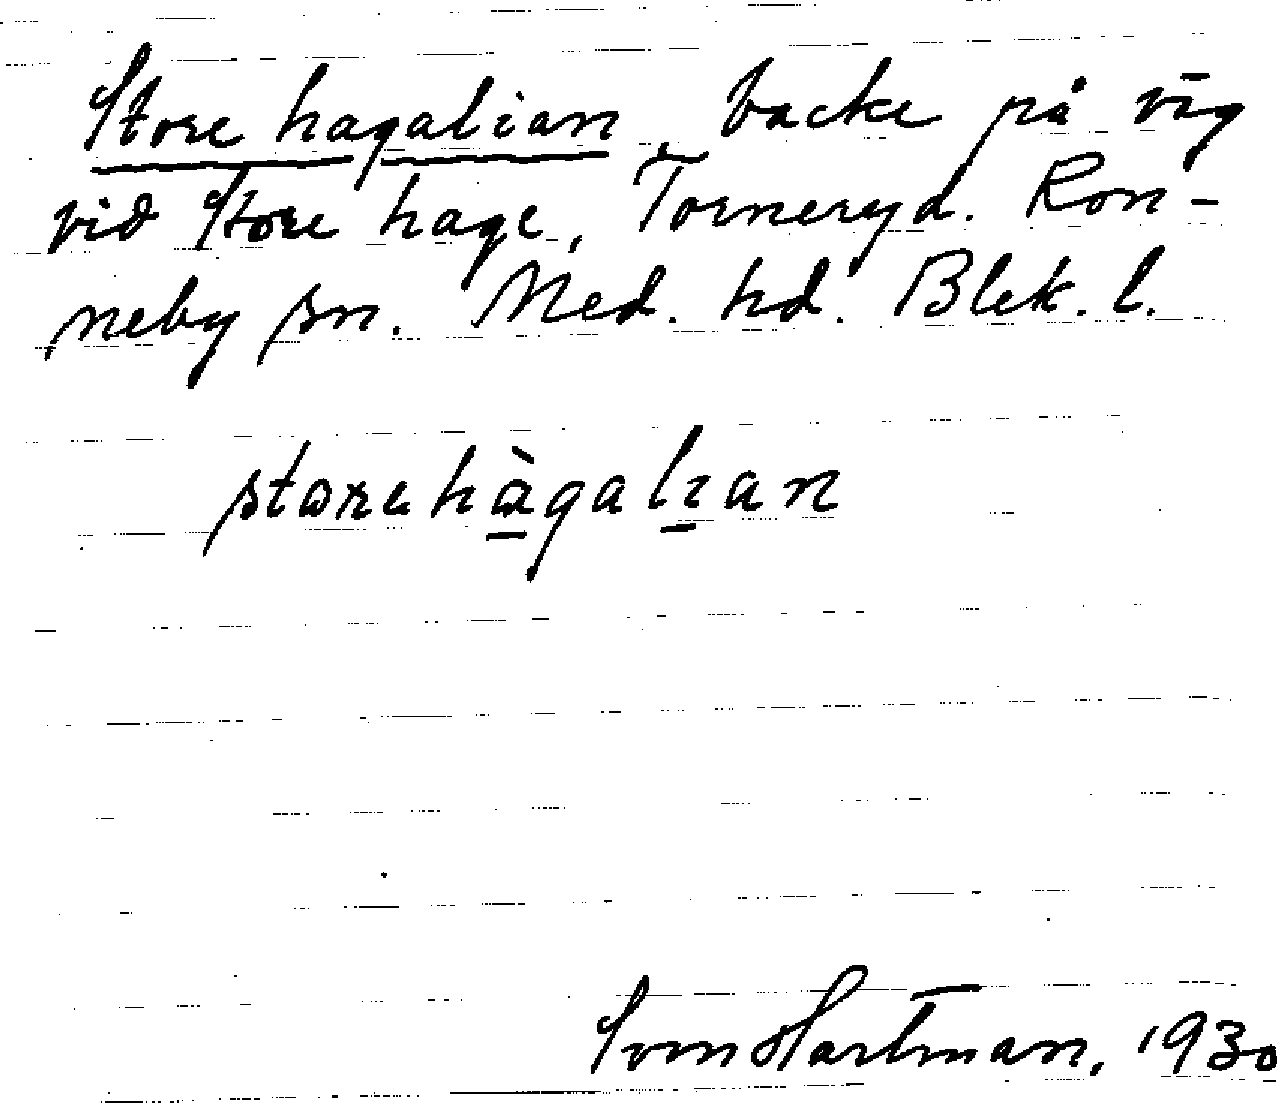 Store hagalian, backe på väg
vid Store hage, Torneryd. Ron-
neby sn. Med. hd. Blek. l.
storehàgalian
Sven Hartman, 1930